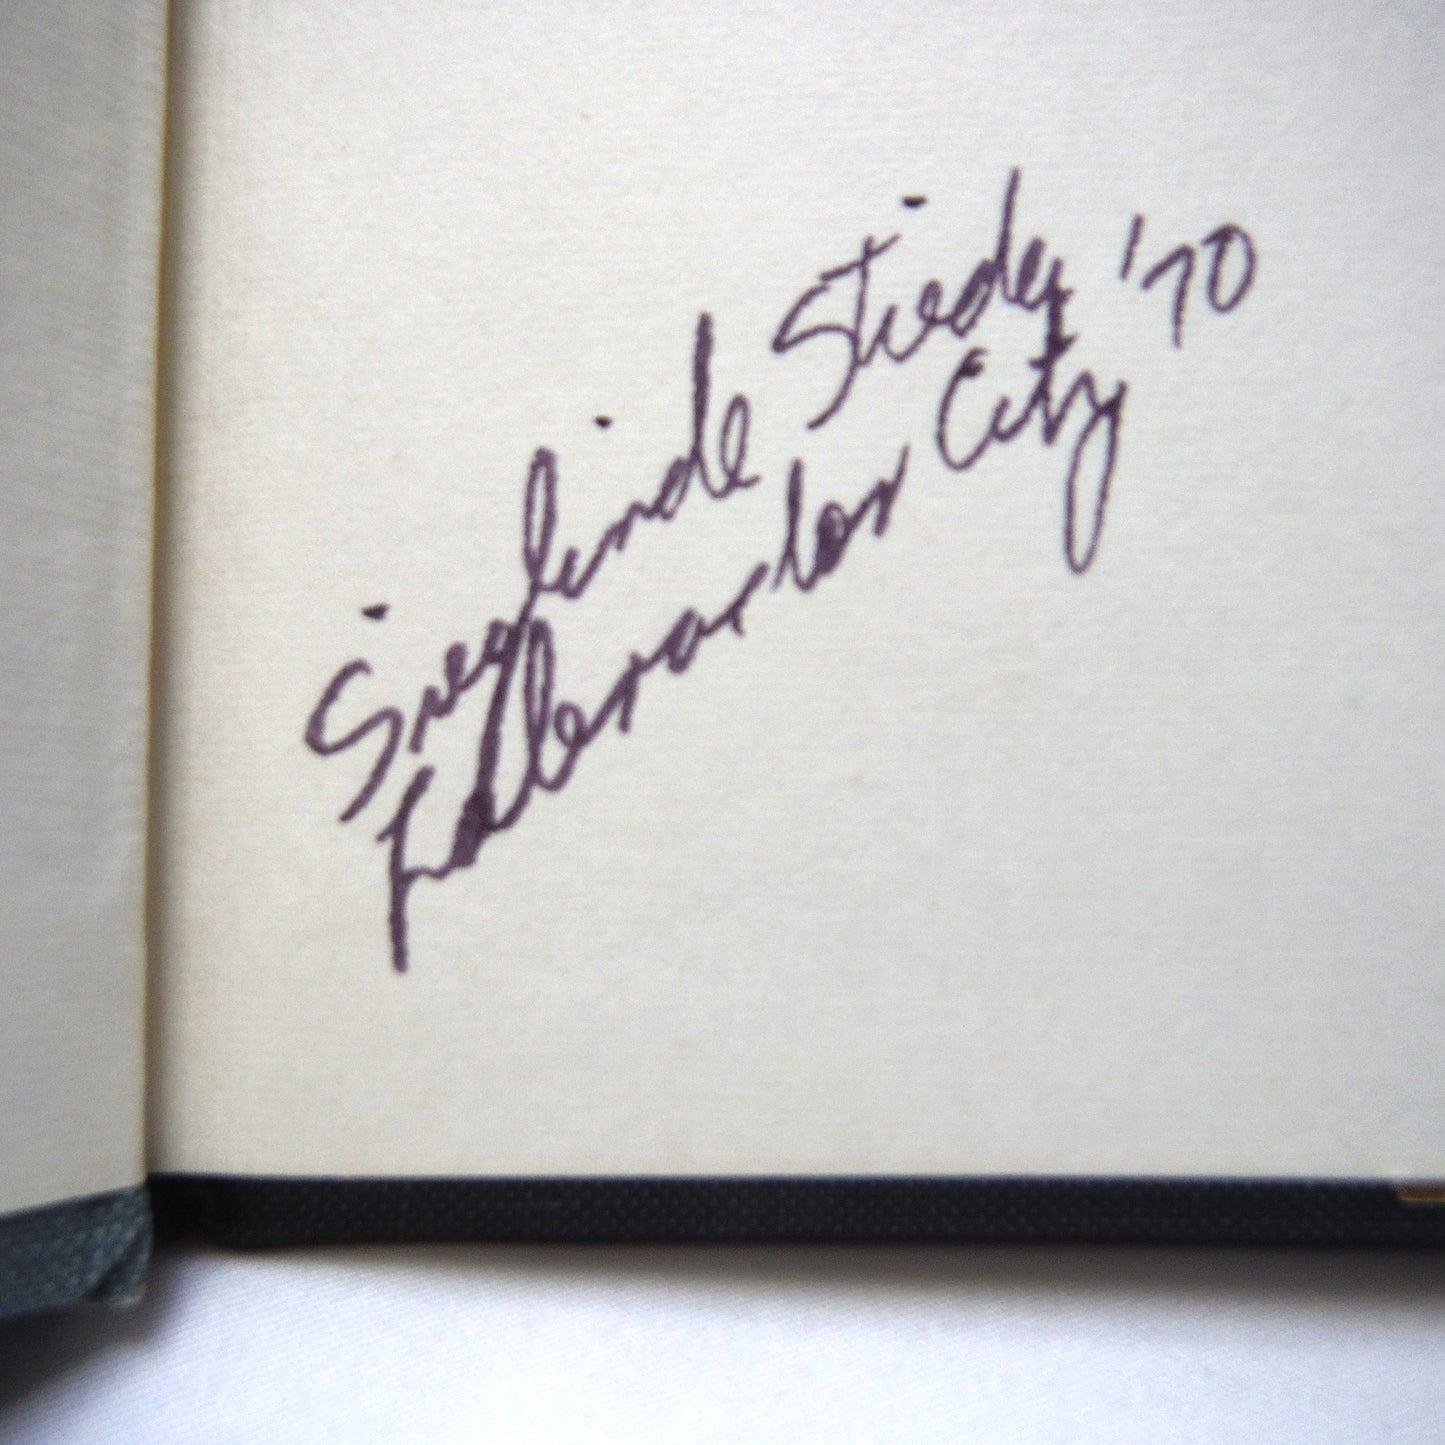 Sieglinde Stieda '70
Labrador City